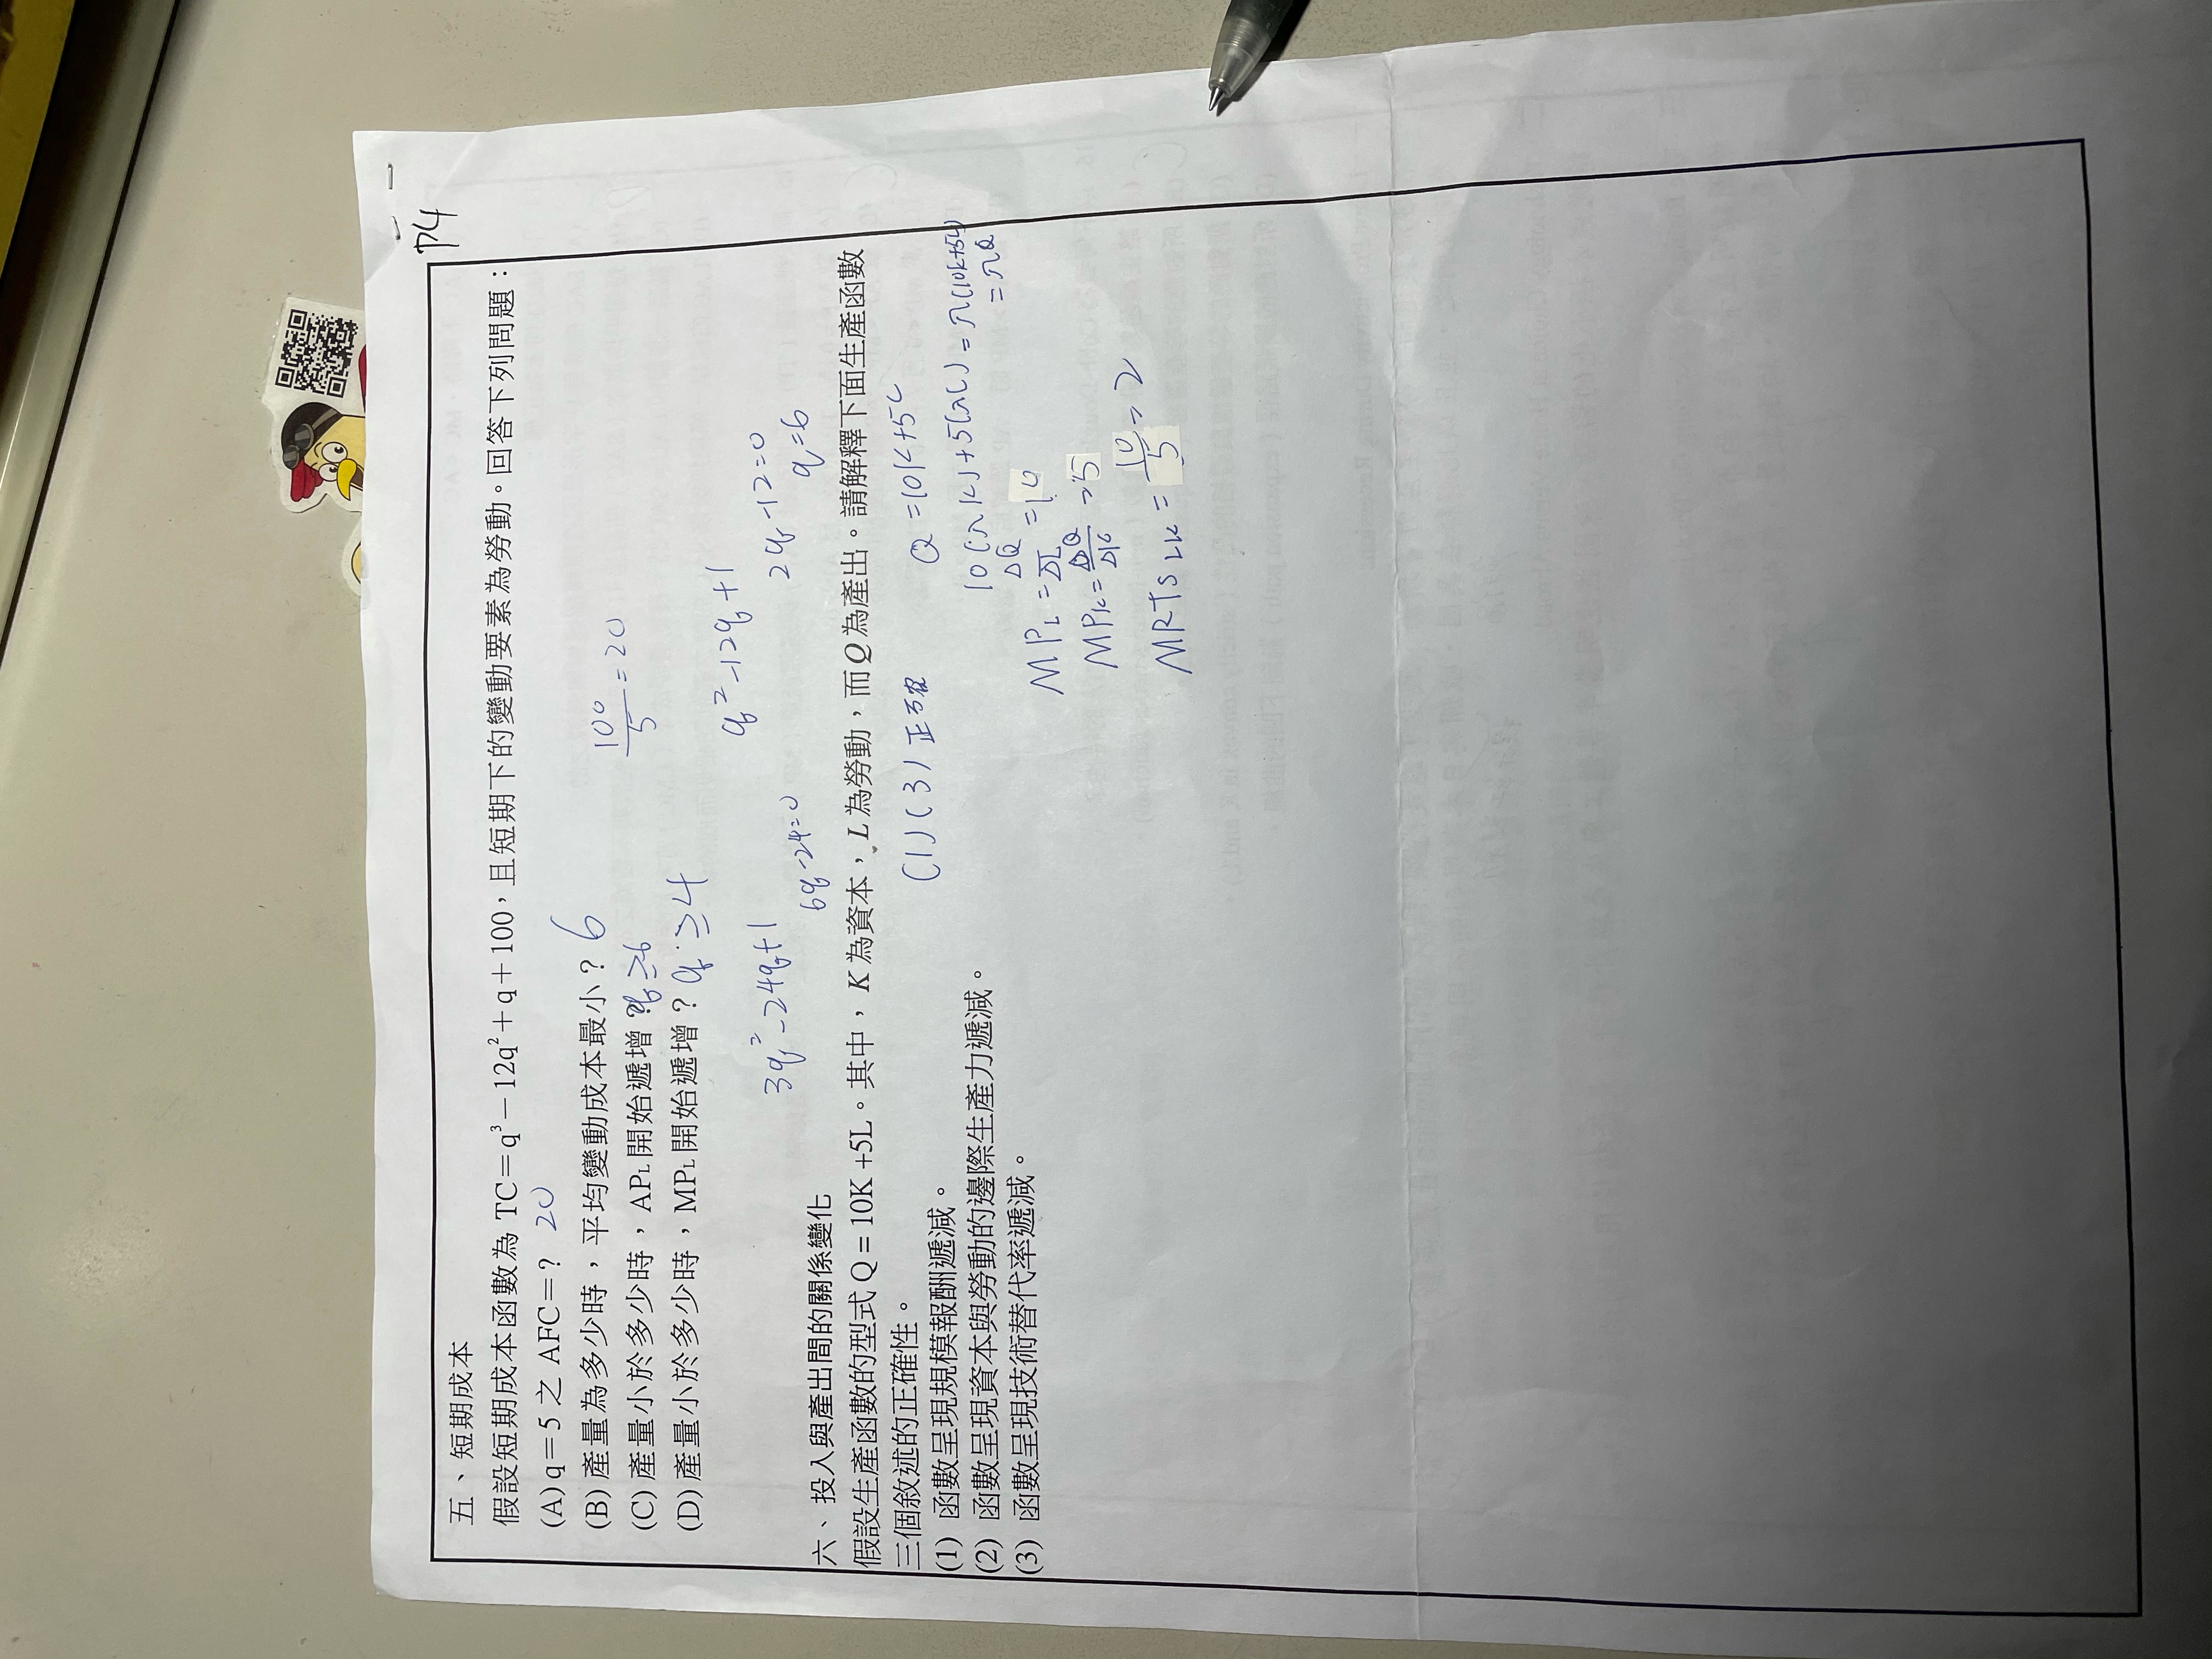 P4
五、短期成本
假設短期成本函數為 TC=q³-12q²+q+100,且短期下的變動要素為勞動。回答下列問題:
(A) q=5 之 AFC=? 20
(B) 產量為多少時,平均變動成本最小? 6
(C) 產量小於多少時,APL 開始遞增? q ≥6
(D) 產量小於多少時,MPL 開始遞增? q ≥4
100/5 = 20
q²-12q+1
2q-12=0
q=6
3q²-24q+1
6q-24=0
六、投入與產出間的關係變化
假設生產函數的型式 Q = 10K +5L。其中, K 為資本, L 為勞動,而 Q 為產出。請解釋下面生產函數
三個敘述的正確性。
(1)(3) 正確
(1) 函數呈現規模報酬遞減。
(2) 函數呈現資本與勞動的邊際生產力遞減。
(3) 函數呈現技術替代率遞減。
Q =10K+5L
10(λK)+5(λL) = λ(10K+5L)
= λQ
MPL = ΔQ/ΔL = 10
MPK = ΔQ/ΔK = 5
MRTS LK = 10/5 = 2